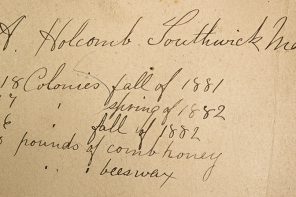 A. Holcomb. Southwick Ma
18 Colonies fall of 1881
17 " spring of 1882
fall of 1882
8 pounds of comb honey
" " " beeswax